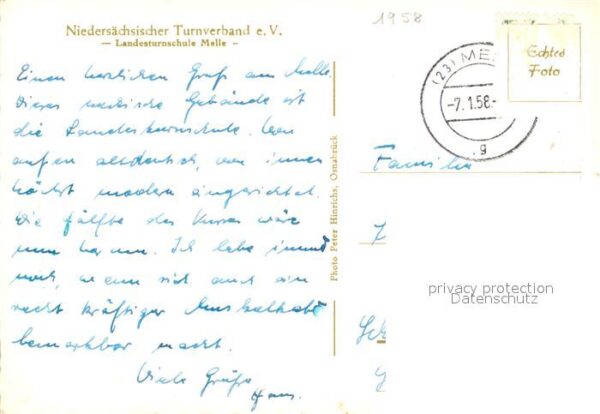 Niedersächsischer Turnverband e. V.
— Landesturnschule Melle —
1958
Echtes
Foto
(23) ME
-7. 1. 58.-
g
Einen herzlichen Gruß aus Melle.
Dieses Gebäude ist
die Landesturnschule. Von
außen altdeutsch, von innen
höchst modern eingerichtet.
Die Hälfte des Kurses wäre
nun herum. Ich lebe immer
noch, wenn sich auch ein
recht kräftiger Muskelkater
bemerkbar macht.
Viele Grüße
Hans.
Photo Peter Hinrichs, Osnabrück
Familie
privacy protection
Datenschutz